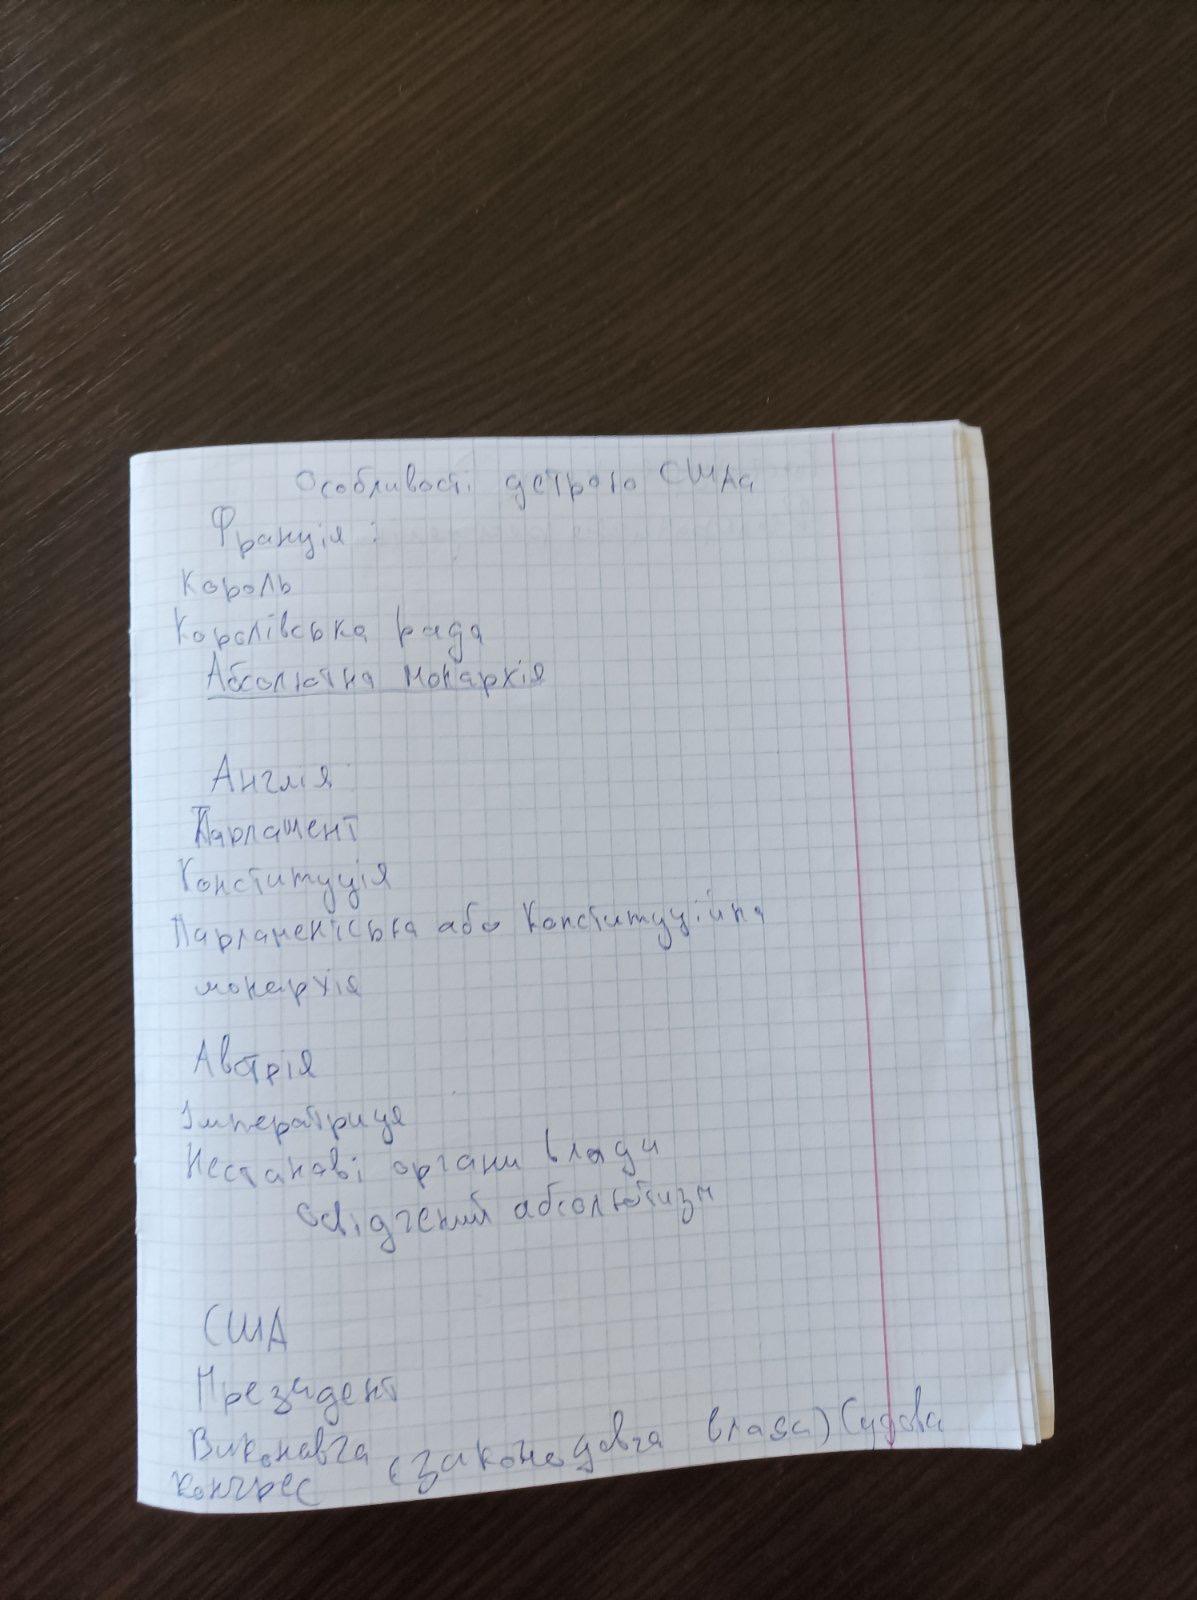 Особливості устрою США
Франція :
Король
Королівська рада
Абсолютна монархія
Англія
Парламент
Конституція
Парламентська або Конституційна
монархія
Австрія
Імператриця
Нестанові органи влади
Освідчений абсолютизм
США
Президент
Виконавча (законодавча влада) Судова
Конгрес